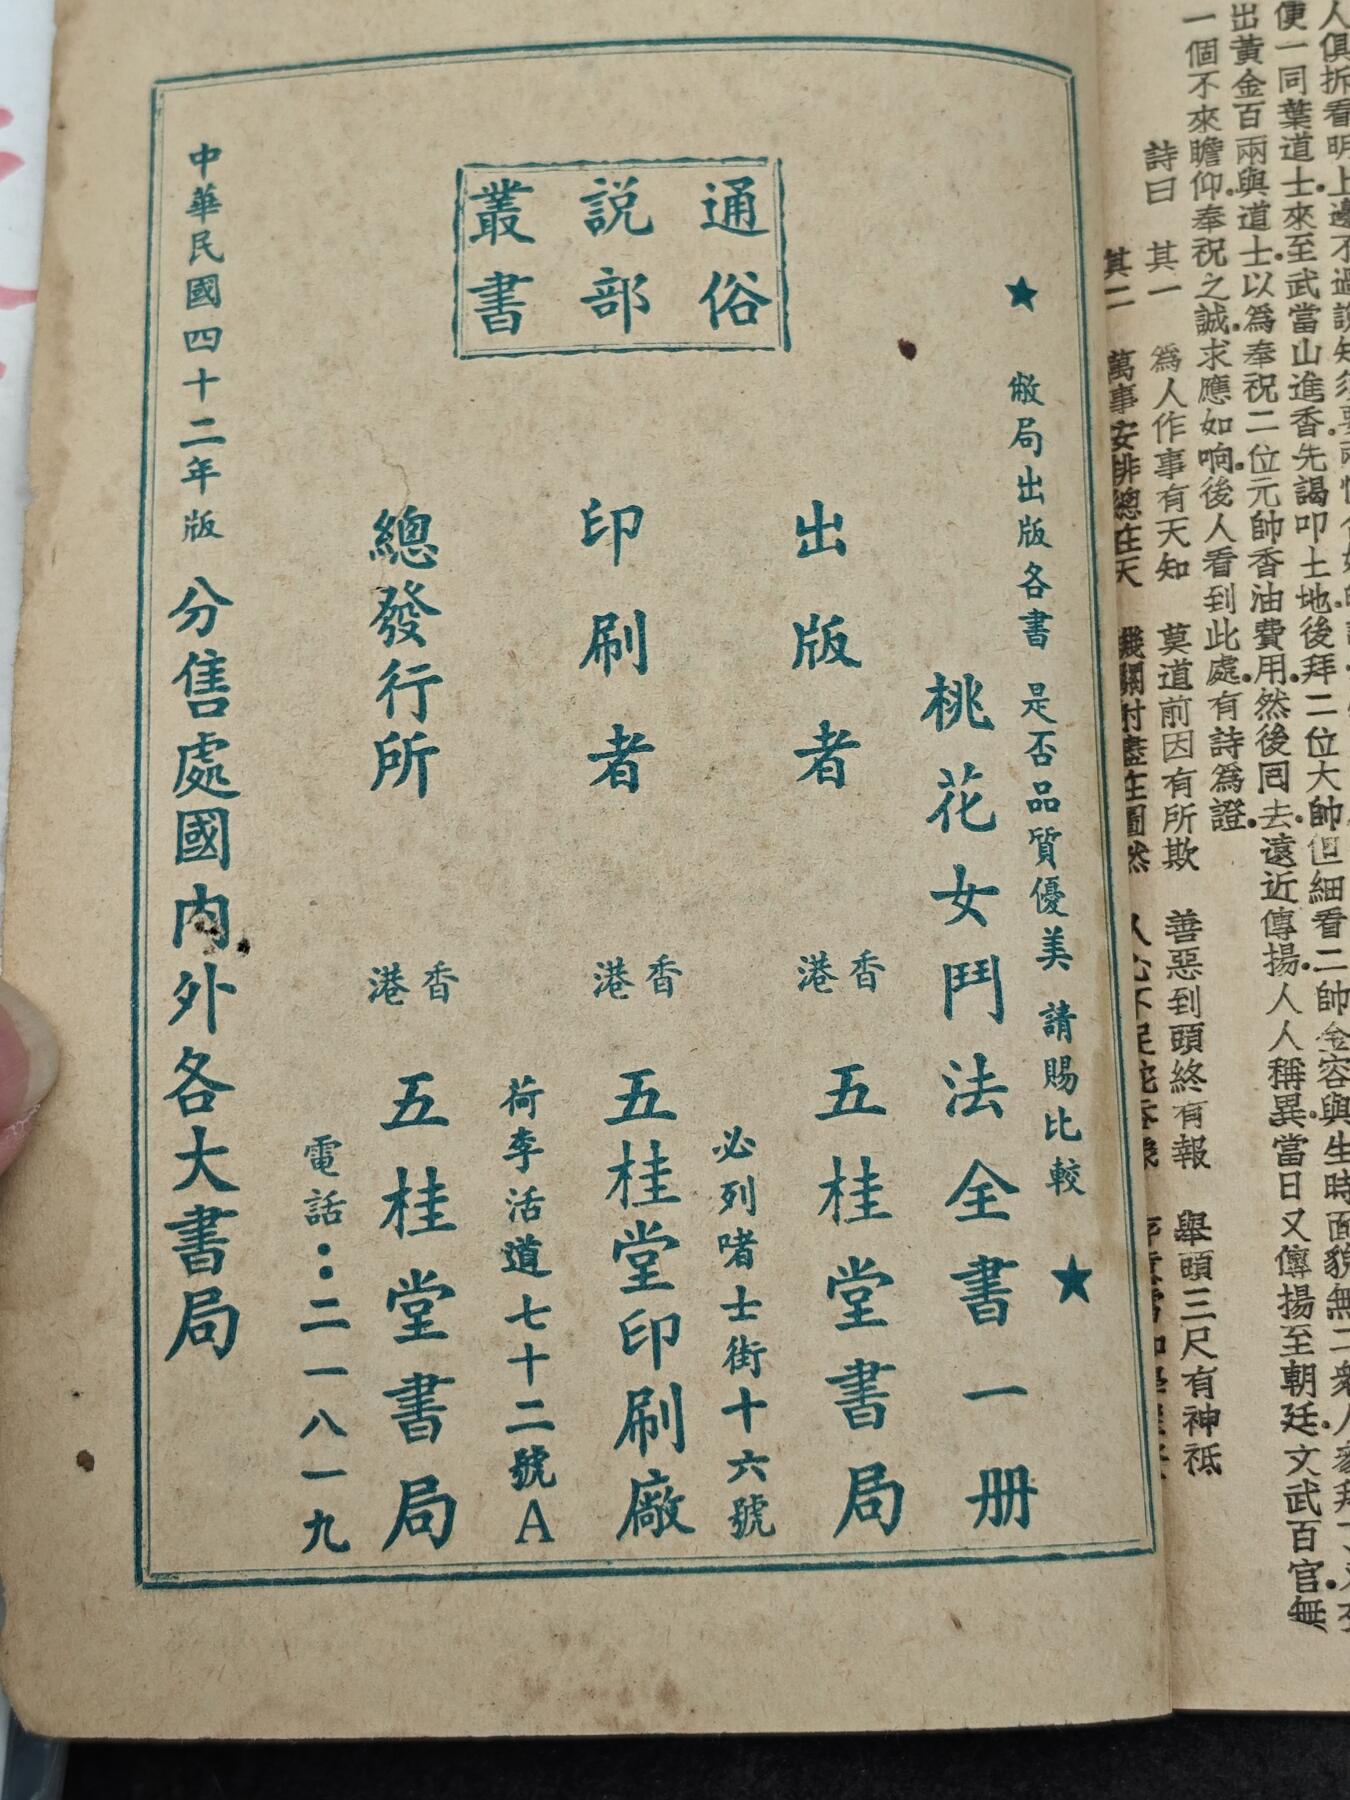 人俱拆看明上邊不過說知須要兩
便一同葉道士來至武當山進香先謁叩土地後拜二位大帥但細看二帥金容與生時面貌無二衆人參拜
出黃金百兩與道士以為奉祝二位元帥香油費用然後囘去遠近傳揚人人稱異當日又傳揚至朝廷文武百官無
一個不來瞻仰奉祝之誠求應如响後人看到此處有詩為證
詩曰 其一 為人作事有天知 莫道前因有所欺 善惡到頭終有報 舉頭三尺有神祗
其二 萬事安排總在天 機關用盡在圖然 人心不足蛇吞象
★ 敝局出版各書 是否品質優美 請賜比較 ★
通俗
說部
叢書
桃花女鬥法全書一册
出版者 香港 五桂堂書局
必列啫士街十六號
印刷者 香港 五桂堂印刷廠
荷李活道七十二號A
總發行所 香港 五桂堂書局
電話：二一八一九
中華民國四十二年版 分售處國內外各大書局